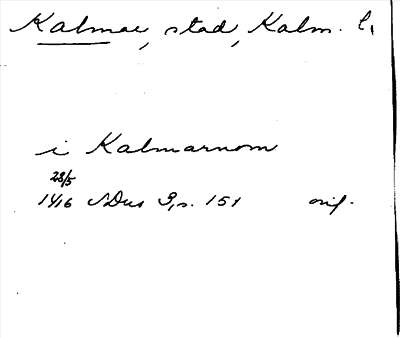 Kalmar, stad, Kalm. l.
i Kalmarnom
28/5
1416 SDns 3, s. 151 orig.